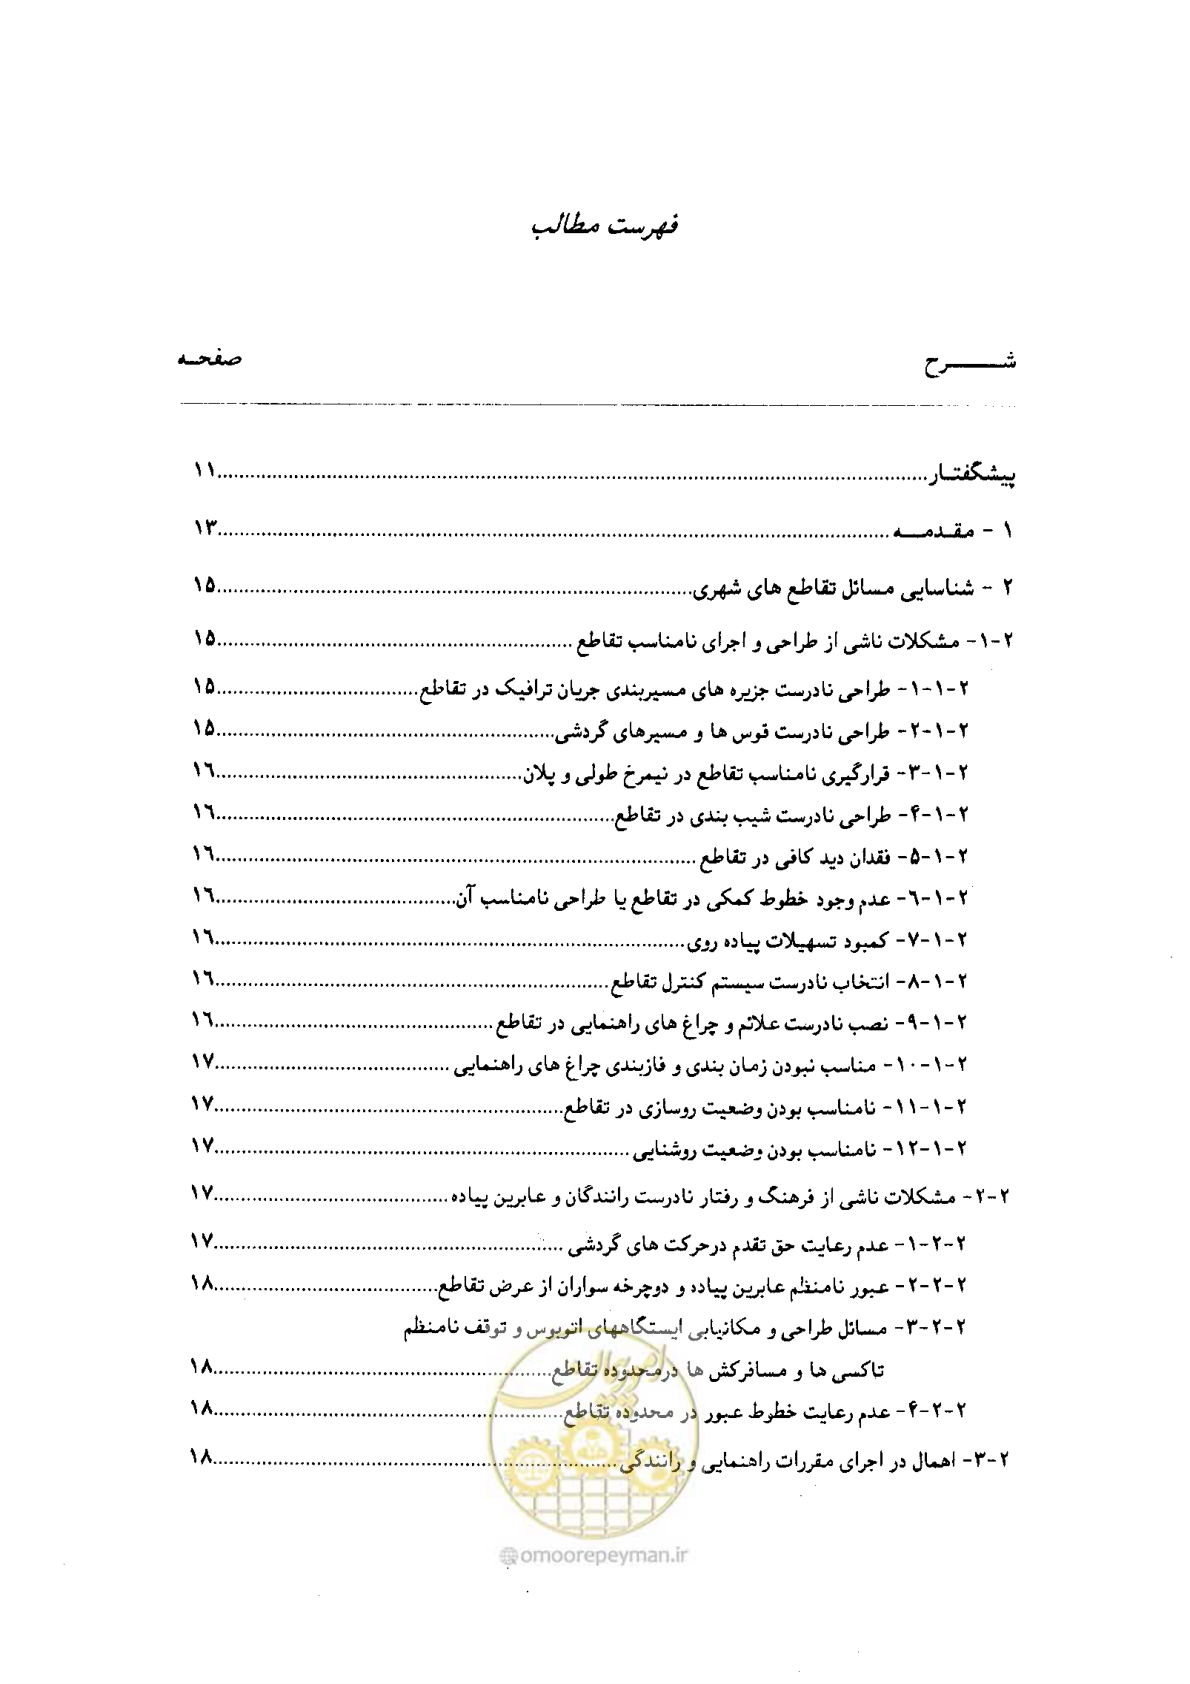 فهرست مطالب
شـــــرح صفحـه
پیشگفتـار........................................................................۱۱
۱ - مقـدمـــه........................................................................۱۳
۲ - شناسایی مسائل تقاطع های شهری........................................................................۱۵
۲-۱- مشکلات ناشی از طراحی و اجرای نامناسب تقاطع........................................................................۱۵
۲-۱-۱- طراحی نادرست جزیره های مسیربندی جریان ترافیک در تقاطع........................................۱۵
۲-۱-۲- طراحی نادرست قوس ها و مسیرهای گردشی........................................................................۱۵
۲-۱-۳- قرارگیری نامناسب تقاطع در نیمرخ طولی و پلان........................................................۱۶
۲-۱-۴- طراحی نادرست شیب بندی در تقاطع........................................................................۱۶
۲-۱-۵- فقدان دید کافی در تقاطع........................................................................۱۶
۲-۱-۶- عدم وجود خطوط کمکی در تقاطع یا طراحی نامناسب آن........................................۱۶
۲-۱-۷- کمبود تسهیلات پیاده روی........................................................................۱۶
۲-۱-۸- انتخاب نادرست سیستم کنترل تقاطع........................................................................۱۶
۲-۱-۹- نصب نادرست علائم و چراغ های راهنمایی در تقاطع........................................۱۶
۲-۱-۱۰- مناسب نبودن زمان بندی و فازبندی چراغ های راهنمایی........................................۱۷
۲-۱-۱۱- نامناسب بودن وضعیت روسازی در تقاطع........................................................۱۷
۲-۱-۱۲- نامناسب بودن وضعیت روشنایی........................................................................۱۷
۲-۲- مشکلات ناشی از فرهنگ و رفتار نادرست رانندگان و عابرین پیاده........................................۱۷
۲-۲-۱- عدم رعایت حق تقدم درحرکت های گردشی........................................................۱۷
۲-۲-۲- عبور نامنظم عابرین پیاده و دوچرخه سواران از عرض تقاطع........................................۱۸
۲-۲-۳- مسائل طراحی و مکانیابی ایستگاههای اتوبوس و توقف نامنظم
تاکسی ها و مسافرکش ها درمحدوده تقاطع........................................................۱۸
۲-۲-۴- عدم رعایت خطوط عبور در محدوده تقاطع........................................................۱۸
۲-۳- اهمال در اجرای مقررات راهنمایی و رانندگی........................................................۱۸
امور پیمان
@omoorepeyman.ir